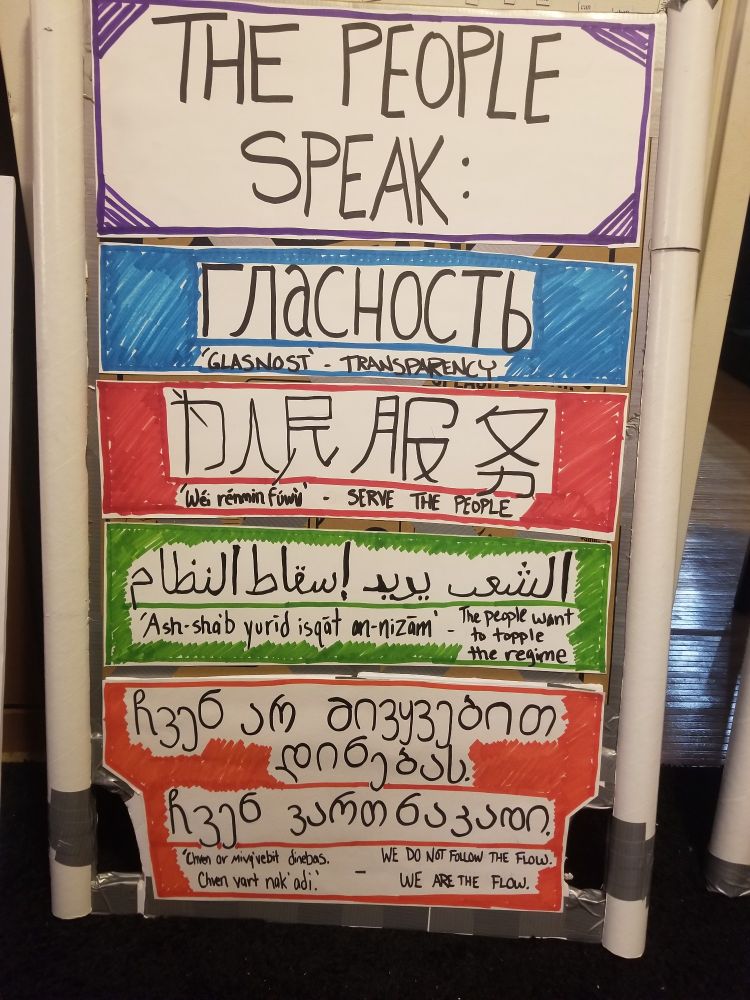 THE PEOPLE
SPEAK:
гласность
'GLASNOST' - TRANSPARENCY
为人民服务
'Wéi rénmín fúwù' - SERVE THE PEOPLE
الشعب يريد إسقاط النظام
'Ash-sha'b yurīd isqāt an-nizām' - The people want
to topple
the regime
ჩვენ არ მივყვებით
დინებას.
ჩვენ ვართ ნაკადი.
'Chven ar mivq'vebit dinebas. - WE DO NOT FOLLOW THE FLOW.
Chven vart nak'adi.' WE ARE THE FLOW.